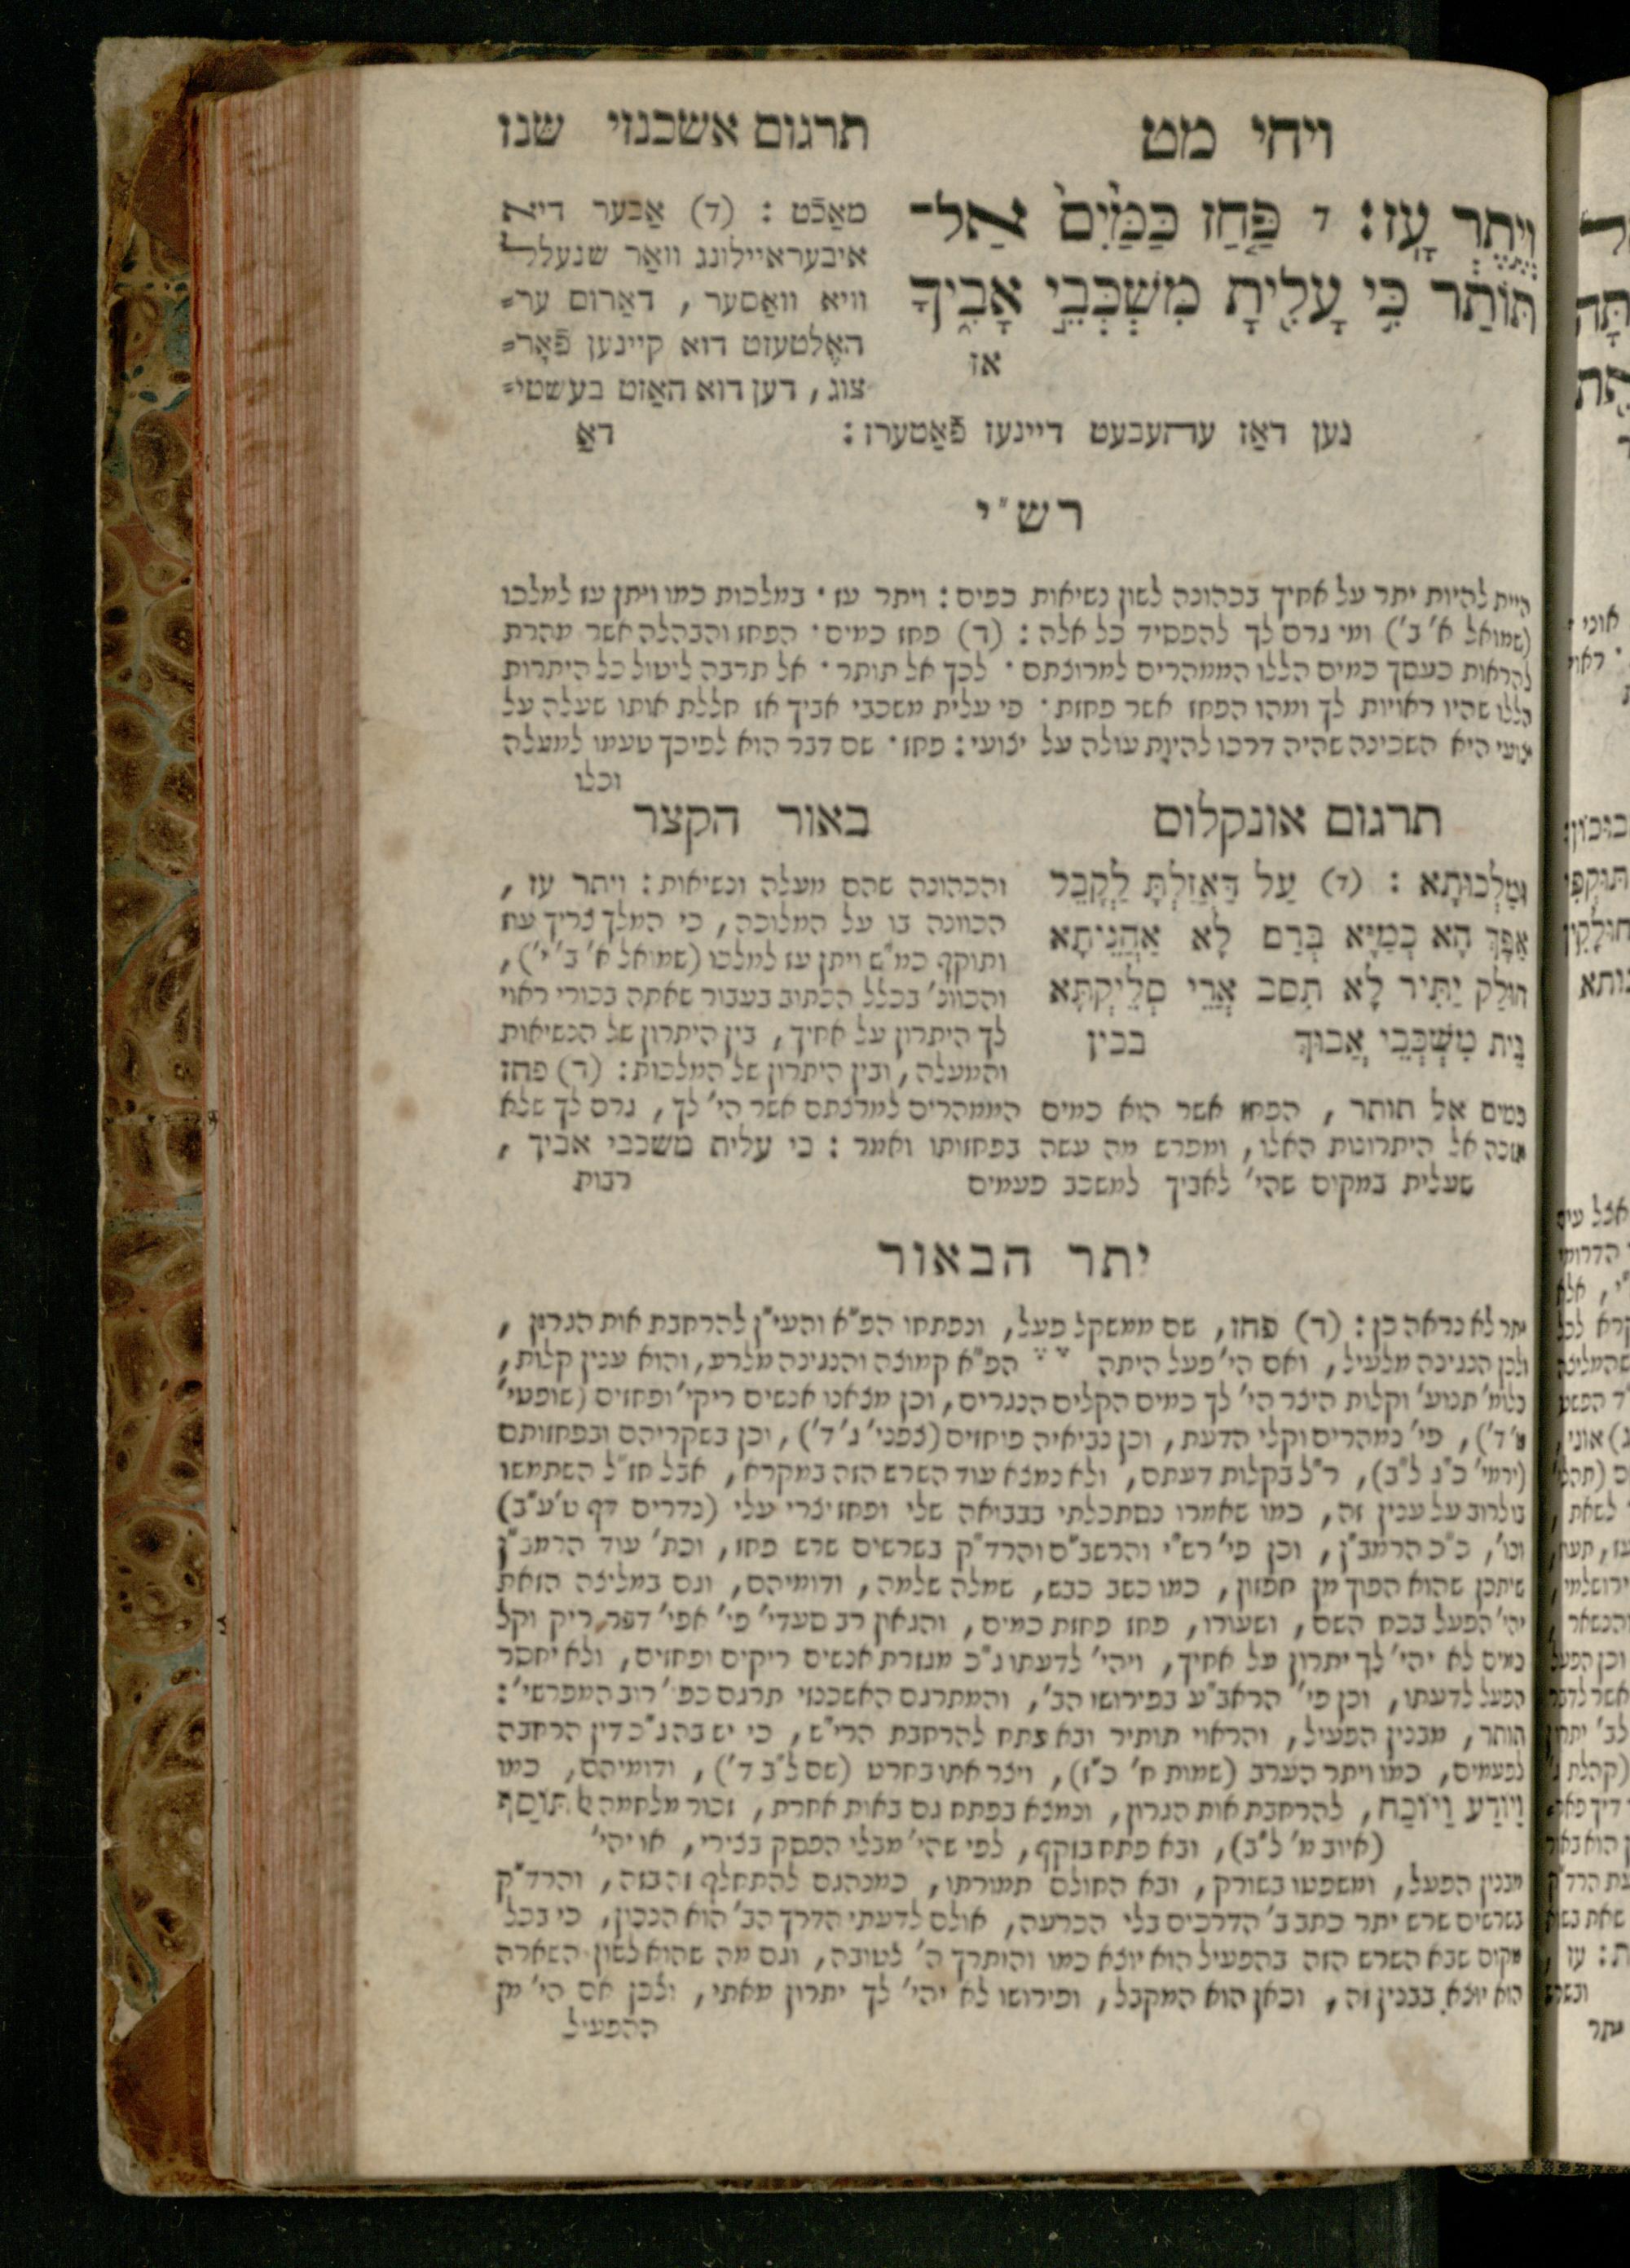 ויחי מט
תרגום אשכנזי שנז
וְיֶ֥תֶר עָֽז׃ ד פַּ֤חַז כַּמַּ֙יִם֙ אַל־
תּוֹתַ֔ר כִּ֥י עָלִ֖יתָ מִשְׁכְּבֵ֣י אָבִ֑יךָ
אז
מאַכֿט : (ד) אַבער דיא
איבעראיילונג וואַר שנעלל
וויא וואַסער , דאַרום ער=
האָלטעזט דוא קיינען פֿאָר=
צוג , דען דוא האַזט בעשטי=
גען דאַז עהעבעט דיינעז פֿאַטערז :
דאַ
רש״י
היית להיות יתר על אחיך בכהונה לשון נשיאות כפים : ויתר עז · במלכות כמו ויתן עז למלכו
(שמואל א׳ ב׳) ומי גרם לך להפסיד כל אלה : (ד) פחז כמים · הפחז והבהלה אשר מהרת
להראות כעסך כמים הללו הממהרים למרוצתם · לכך אל תותר · אל תרבה ליטול כל היתרות
הללו שהיו ראויות לך ומהו הפחז אשר פחזת · כי עלית משכבי אביך אז חללת אותו שעלה על
יצועי היא השכינה שהיה דרכו להיות עולה על יצועי : פחז · שם דבר הוא לפיכך טעמו למעלה
וכלו
תרגום אונקלוס
וּמַלְכוּתָא : (ד) עַל דַּאֲזַלְתָּ לָקֳבֵל
אַפָּךְ הָא כְמַיָּא בְּרַם לָא אַהֲנֵיתָא
חוּלַק יַתִּיר לָא תִסב אֲרֵי סְלֵיקְתָּא
בֵּית מִשְׁכְּבֵי אֲבוּךְ
בכין
באור הקצר
והכהונה שהם מעלה ונשיאות : ויתר עז ,
הכוונה בו על המלוכה , כי המלך צריך עוז
ותוקף כמ״ש ויתן עז למלכו (שמואל א׳ ב׳ י׳) ,
והכוונ׳ בכלל הכתוב בעבור שאתה בכורי ראוי
לך היתרון על אחיך , בין היתרון של הנשיאות
והמעלה , ובין היתרון של המלכות : (ד) פחז
כמים אל תותר , הפחז אשר הוא כמים הממהרים למרוצתם אשר הי׳ לך , גרם לך שלא
תזכה אל היתרונות האלו , ומפרש מה עשה בפחזותו ואמר : כי עלית משכבי אביך ,
שעלית במקום שהי׳ לאביך למשכב פעמים
רבות
יתר הבאור
יתר לא נראה כן : (ד) פחז , שם ממשקל פעל , ונפתחו הפ״א והעי״ן להרחבת אות הגרון ,
ולכן הנגינה מלעיל , ואם הי׳ פעל היתה הפ״א קמוצה והנגינה מלרע , והוא ענין קלות ,
כלומ׳ תנוע׳ וקלות היצר הי׳ לך כמים הקלים הנגרים , וכן מצאנו אנשים ריקי׳ ופחזים (שופטי׳
ט׳ ד׳) , פי׳ נמהרים וקלי הדעת , וכן נביאיה פוחזים (צפני׳ ג׳ ד׳) , וכן בשקריהם ובפחזותם
(ירמי׳ כ״ג ל״ב) , ר״ל בקלות דעתם , ולא נמצא עוד השרש הזה במקרא , אבל חז״ל השתמשו
בו לרוב על ענין זה , כמו שאמרו נסתכלתי בבבואה שלי ופחז יצרי עלי (נדרים דף ט׳ ע״ב)
וכו׳ , כ״כ הרמב״ן , וכן פי׳ רש״י והרשב״ם והרד״ק בשרשים שרש פחז , וכת׳ עוד הרמב״ן
שיתכן שהוא הפוך מן חפזון , כמו כשב כבש , שמלה שלמה , ודומיהם , וגם במליצה הזאת
יהי׳ הפעל בכח השם , ושעורו , פחז פחזת כמים , והגאון רב סעדי׳ פי׳ אפי׳ דבר ריק וקל
כמים לא יהי׳ לך יתרון על אחיך , ויהי׳ לדעתו ג״כ מגזרת אנשים ריקים ופחזים , ולא יחסר
הפעל לדעתו , וכן פי׳ הראב״ע בפירושו הב׳ , והמתרגם האשכנזי תרגם כפ׳ רוב המפרשי׳ :
תותר , מבנין הפעיל , והראוי תותיר ובא פתח להרחבת הרי״ש , כי יש בה ג״כ דין הרחבה
לפעמים , כמו ויתר הערב (שמות ח׳ כ״ז) , ויצר אתו בחרט (שם ל״ב ד׳) , ודומיהם , כמו
וַיּוֹדַע וַיּוֹכַח , להרחבת אות הגרון , ונמצא בפתח גם באות אחרת , זכור מלחמה אל תּוֹסַף
(איוב מ׳ ל״ב) , ובא פתח בזקף , לפי שהי׳ מבלי הפסק בצירי , או יהי׳
מבנין הפעל , ומשפטו בשורק , ובא החולם תמורתו , כמנהגם להתחלף זה בזה , והרד״ק
בשרשים שרש יתר כתב ב׳ הדרכים בלי הכרעה , אולם לדעתי הדרך הב׳ הוא הנכון , כי בכל
מקום שבא השרש הזה בהפעיל הוא יוצא כמו והותרך ה׳ לטובה , וגם מה שהוא לשון השארה
הוא יוצא בבנין זה , וכאן הוא המקבל , ופירושו לא יהי׳ לך יתרון מאתי , ולכן אם הי׳ מן
ההפעיל